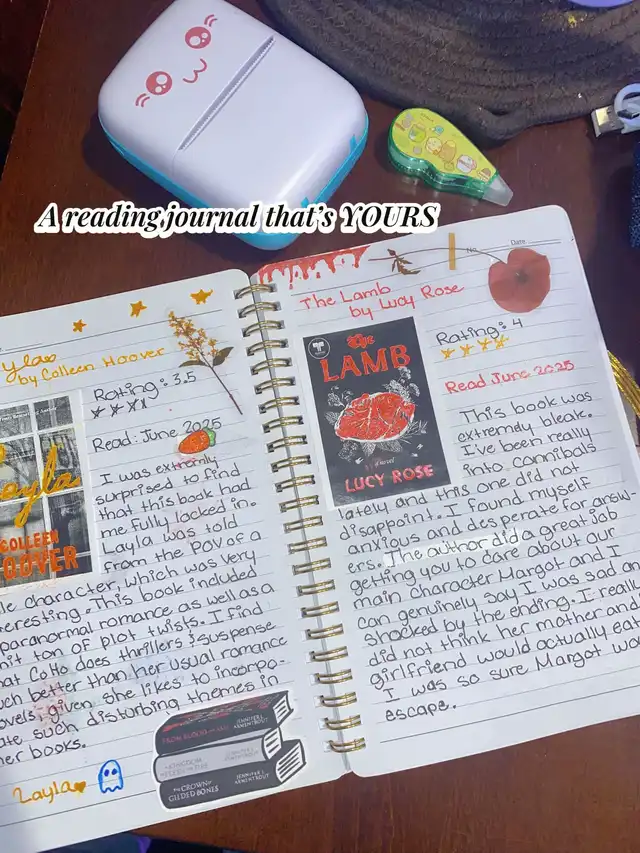 A reading journal that's YOURS
yla
by Colleen Hoover
Rating: 3.5
Read: June 2025
COLLEEN
OOVER
I was extremly
surprised to find
that this book had
me fully locked in.
Layla was told
from the POV of a
le character, which was very
eresting. This book included
paranormal romance as well as a
it ton of plot twists. I find
at CoHo does thrillers & suspense
uch better than her usual romance
ovels, given she likes to incorpo-
ate such disturbing themes in
her books.
Layla
FROM BLOOD AND ASH
JENNIFER L. ARMENTROUT
A KINGDOM OF FLESH AND FIRE
JENNIFER L. ARMENTROUT
THE CROWN OF GILDED BONES
JENNIFER L. ARMENTROUT
No.
Date
The Lamb
by Lucy Rose
THE
LAMB
LUCY ROSE
Rating: 4
Read June 2025
This book was
extremely bleak.
I've been really
into cannibals
lately and this one did not
disappoint. I found myself
anxious and desperate for answ-
ers. The author did a great job
getting you to care about our
main character Margot and I
can genuinely say I was sad an
shocked by the ending. I really
did not think her mother and
girlfriend would actually eat
I was so sure Margot wo
escape.